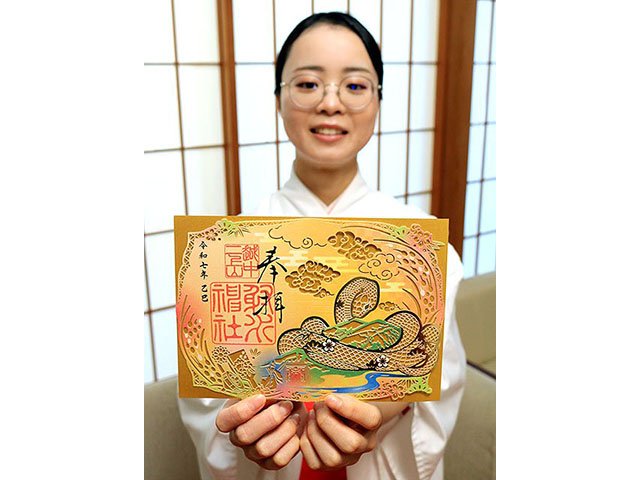 奉拝
越中
二上山
射水
神社
令和七年 乙巳